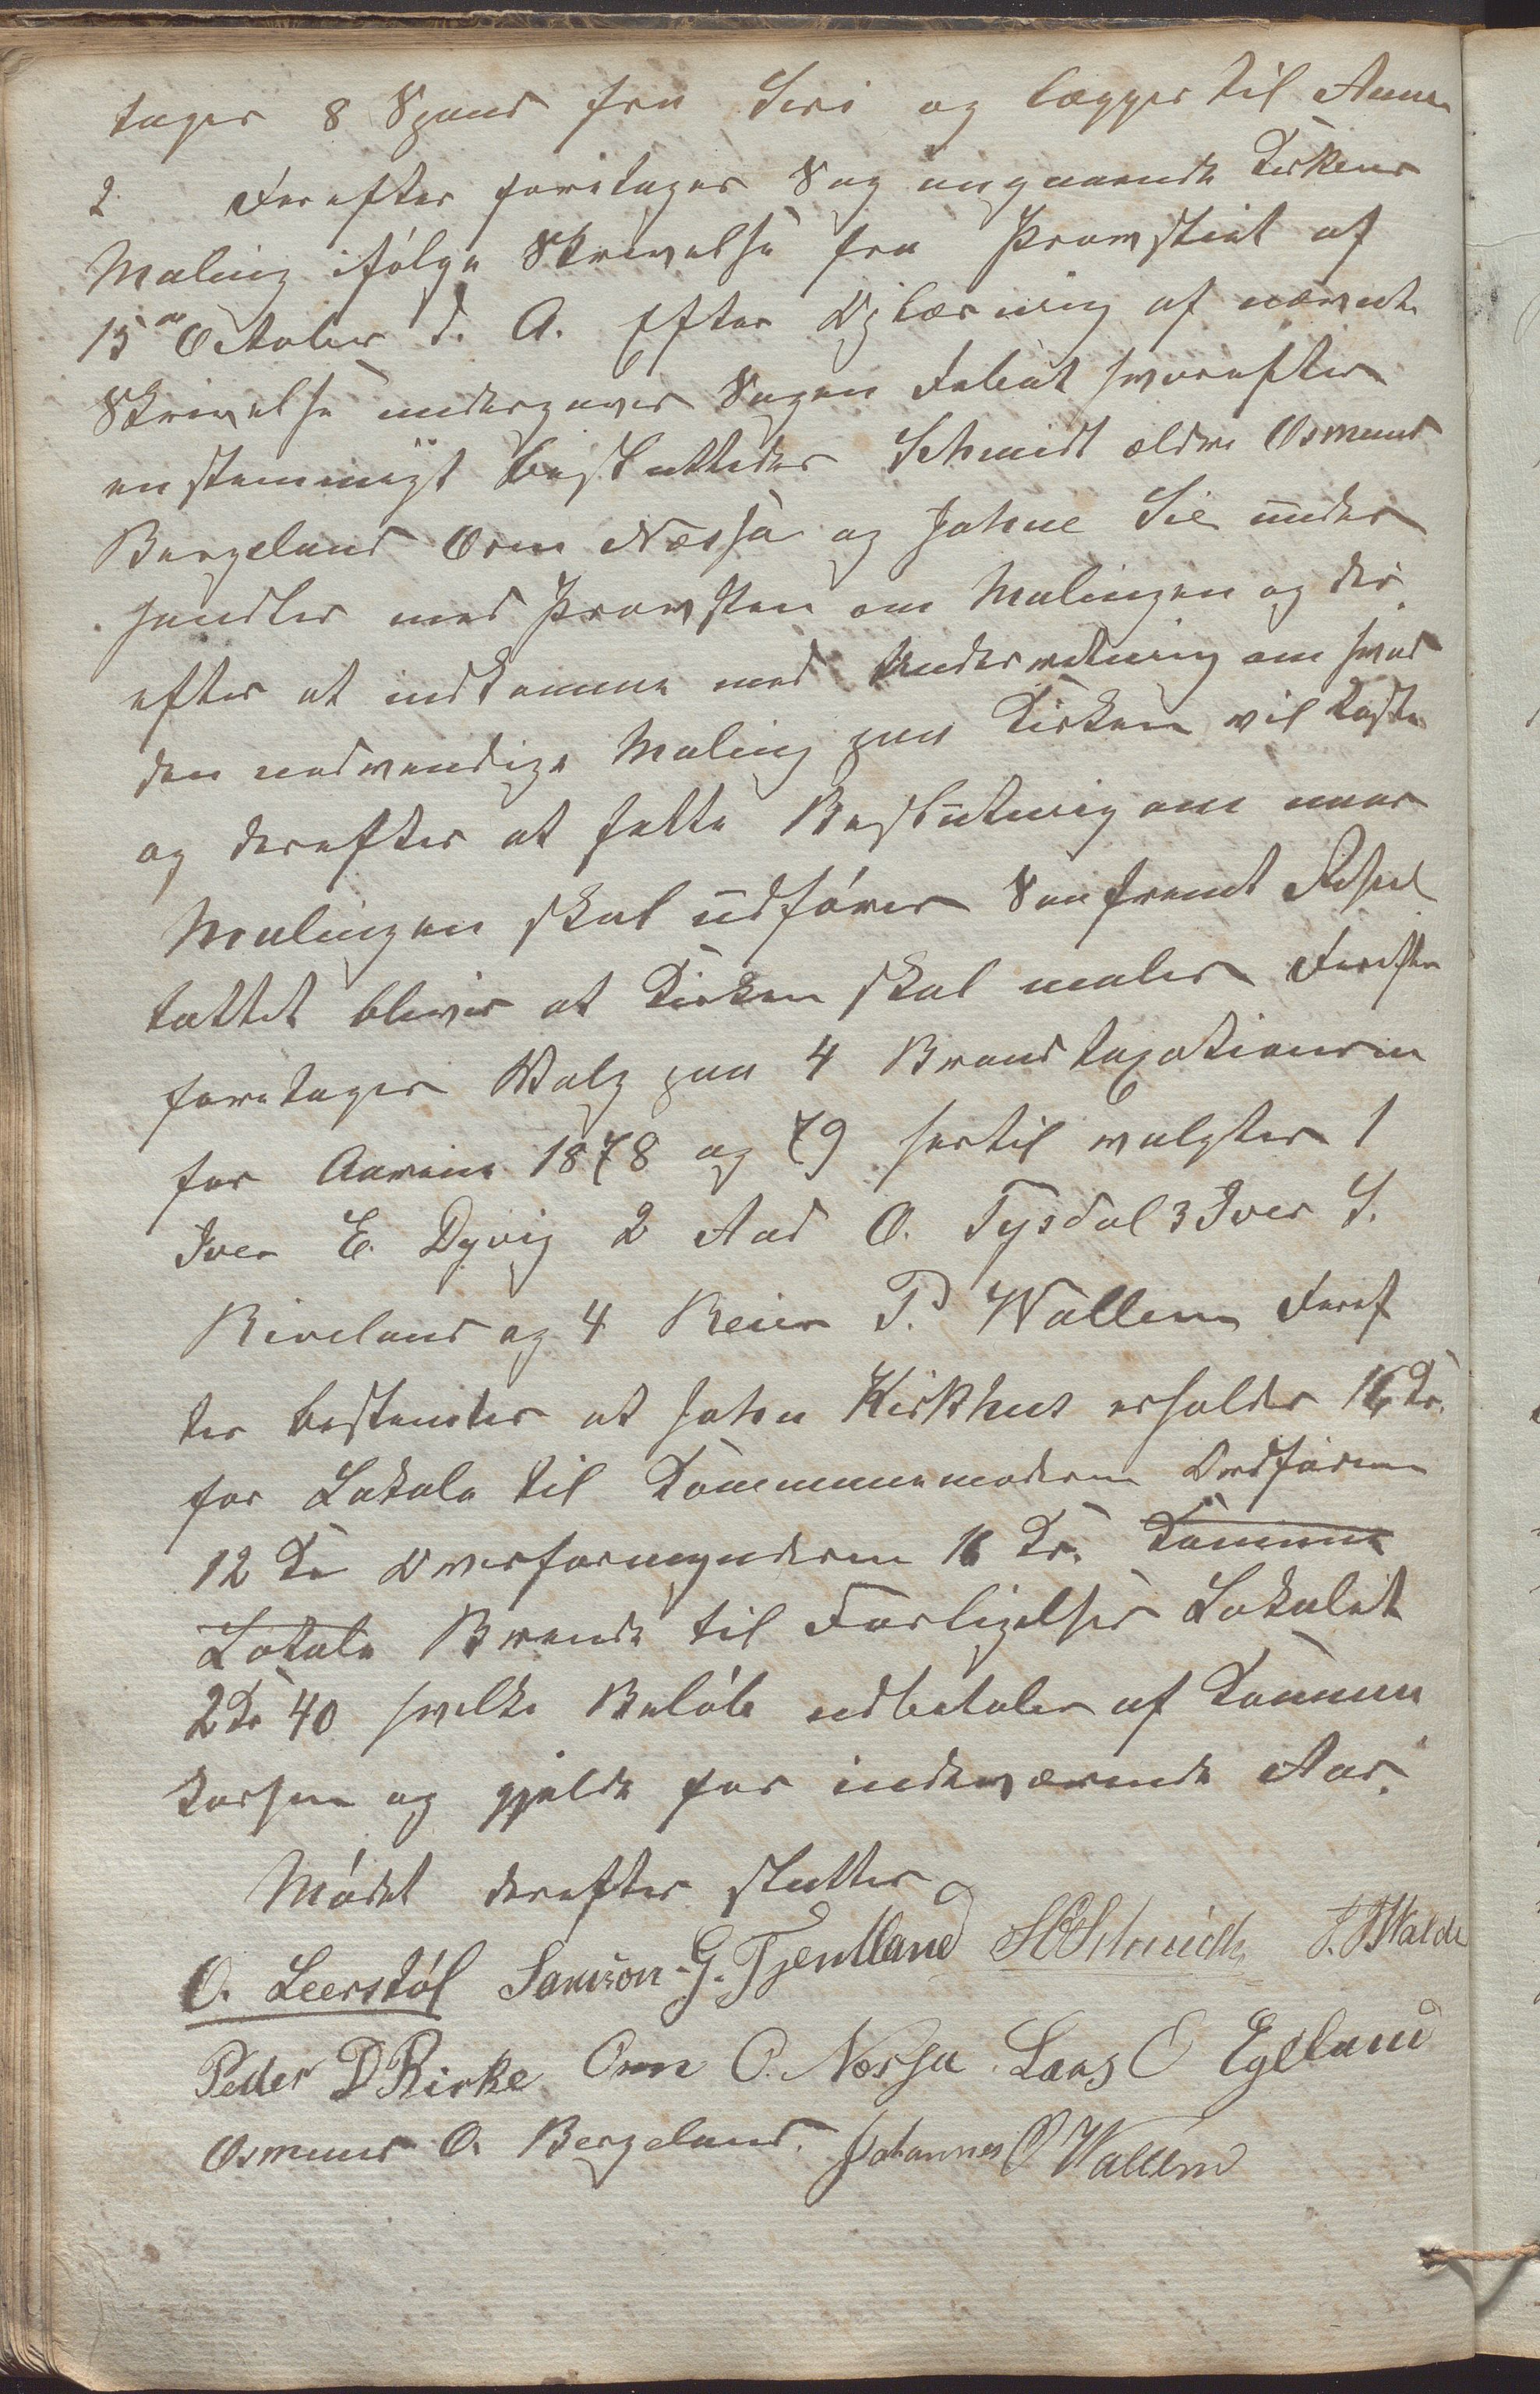 tages 8 Spand fra Siri og lægges til Anna
2. Derefter foretages Sag angaaende Kirkens
Maling ifølge Skrivelse fra Provstiet af
15de October d. A. Efter Oplæsning af nævnte
Skrivelse undergaves Sagen Debat hvorefter
enstemmigt besluttedes Schmidt ældre Osmund
Bergeland Orm Næssa og Johne Sie under
handler med Provsten om Malingen og der
efter at indkomme med Underretning om hvad
den nødvendige Maling paa Kirken vil koste
og derefter at fatte Beslutning om naar
Malingen skal udføres Saafremt Resul
tattet bliver at Kirken skal males Derefter
foretages Valg paa 4 Brandtaxationsm
for Aarene 1878 og 79 hertil valgtes 1
Iver E. Dyvig 2 Aad O. Tysdal 3 Iver S.
Riveland og 4 Reier P. Wallem Deref
ter bestemtes at John Kirkhus erholder 16 Kr.
for Lokale til Kommunemøderne Ordføreren
12 Kr Overformynderen 16 Kr. Kommune
Lokale Brænde til Forligelses Lokalet
2 Kr 40 hvilke Beløb udbetales af Kommun
kassen og gjælde for indeværende Aar.
Mødet derefter sluttes
O. Leerstøl Samson G. Tjentland Schmidt Walde
Peder D Kirke Orm O. Næssa Lars O Egeland
Osmund O. Bergeland. Johannes O Wallem